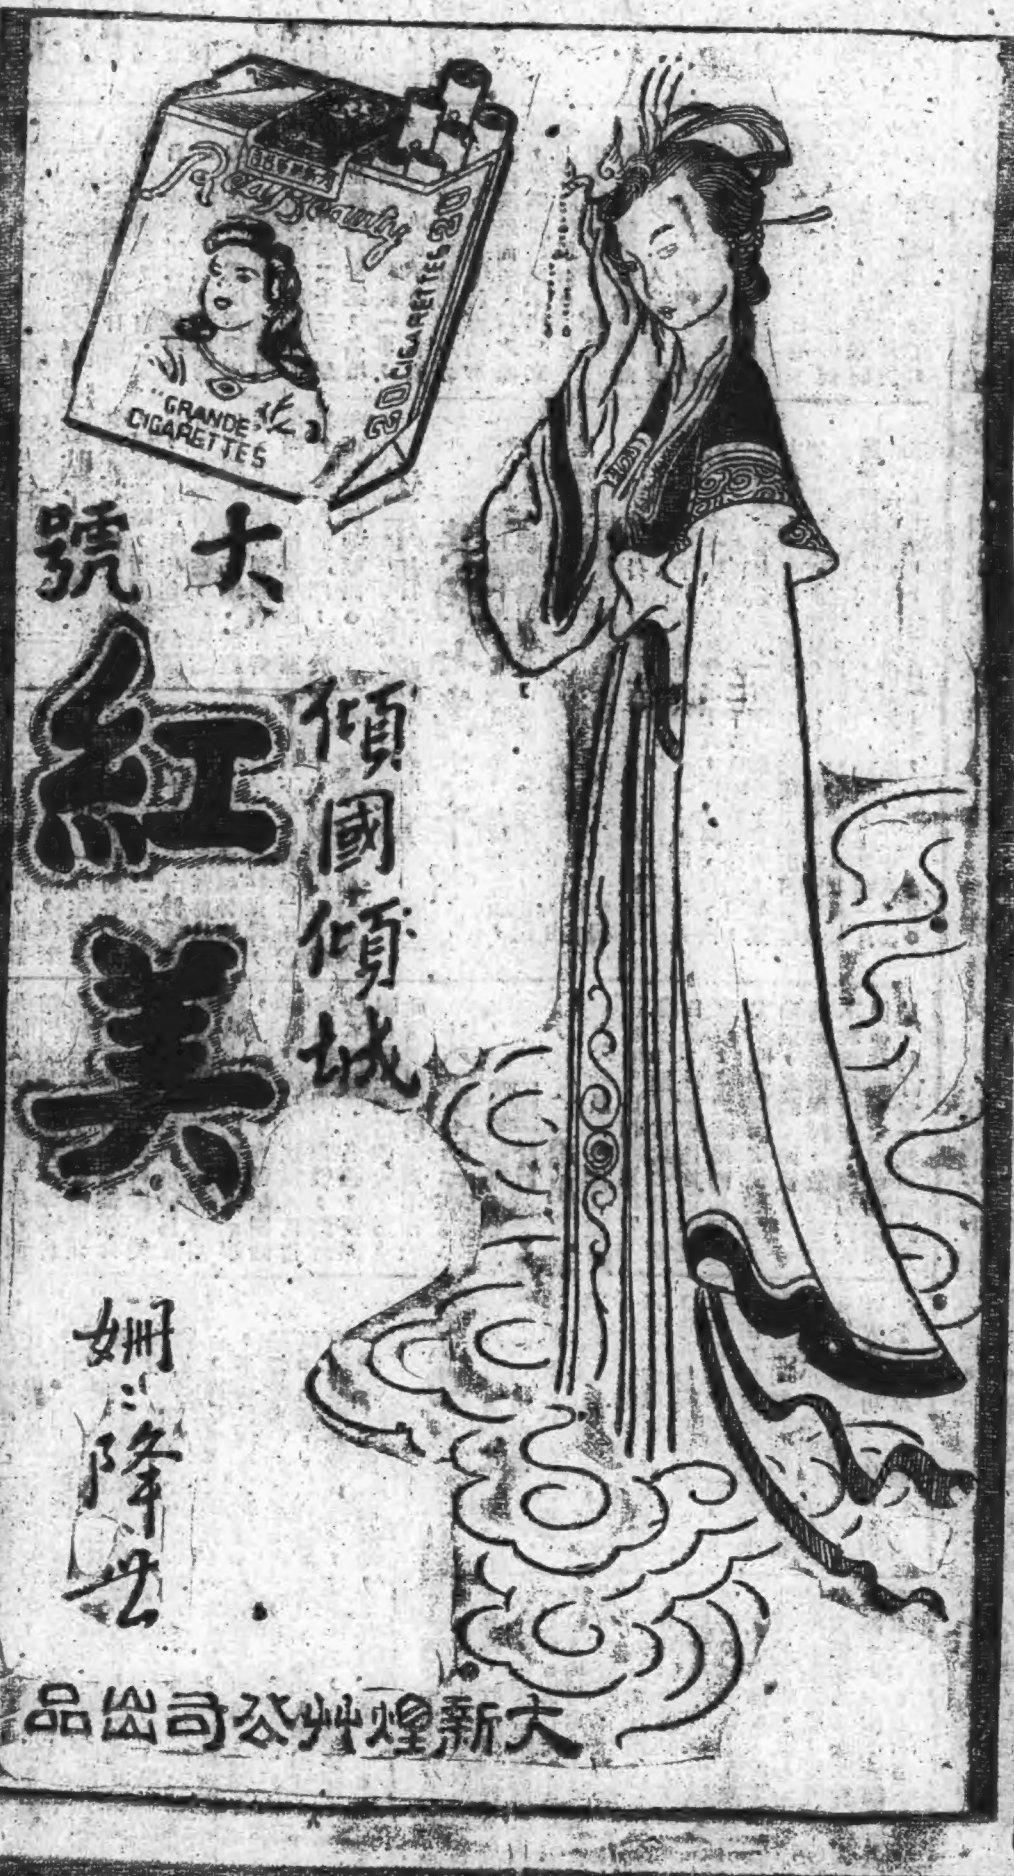 Red Beauty
20 CIGARETTES 20
"GRANDE"
CIGARETTES
大號
紅美
傾國傾城
姍〻降世
大新煙艸公司出品